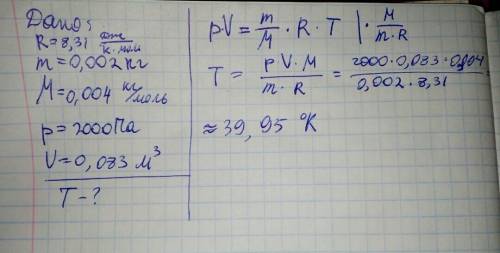 Дано:
R=8,31 Дж/К·моль
m=0,002 кг
M=0,004 кг/моль
p=2000 Па
V=0,083 м³
T-?
pV = m/M · R · T | · M/m·R
T = p·V·M/m·R = 2000·0,083·0,004/0,002·8,31
≈39,95 °K